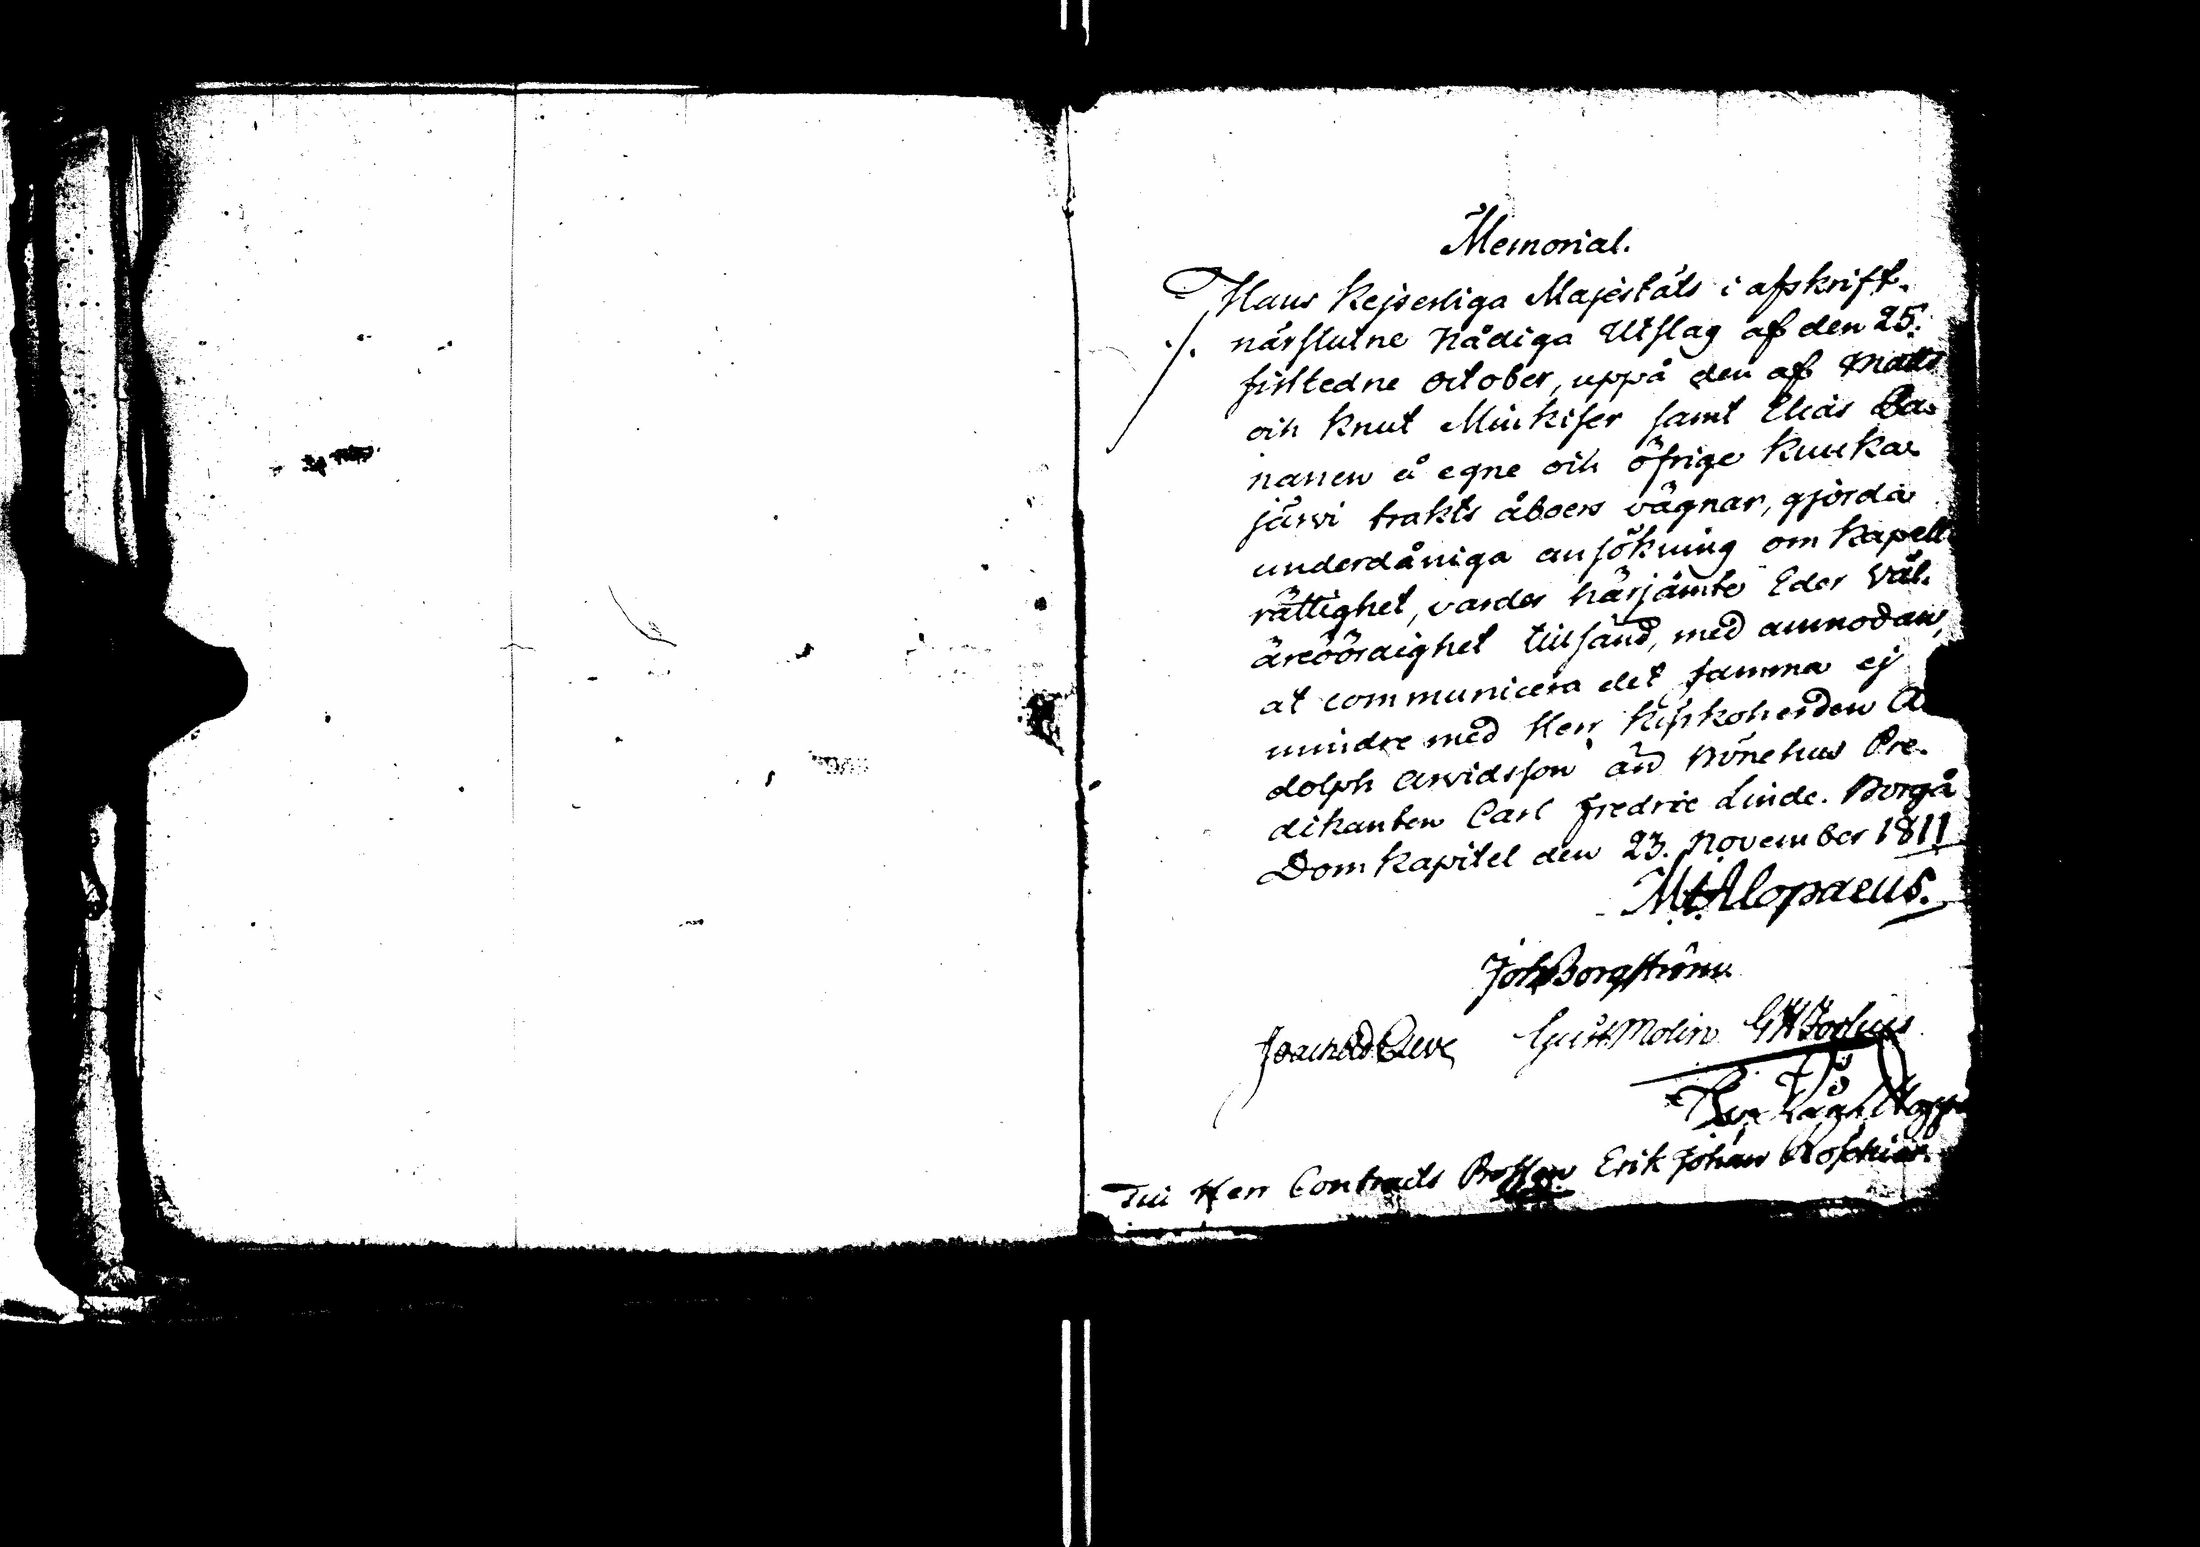 Memorial.
Hans Kejserliga Majestäts i afskrift
./. närslutne Nådiga Utslag af den 25.
sistledne October, uppå den af Matts
och Knut Minkiser samt Elias Pa-
nanen å egne och öfrige Kuuka-
järvi trakts åboers vägnar, gjorda
underdåniga ansökning om Kapell-
rättighet, varder härjämte Eder Väl-
ärevördighet tillsänd, med anmodan,
at communicera det samma ej
mindre med Herr Kyrkoherden A-
dolph Arvidsson än Bönehus Pre-
dikanten Carl Fredric Linde. Borgå
Domkapitel den 23. November 1811
M. Alopaeus.
Joh. Borgström
Gust. Molin
Till Herr Contracts Prosten Erik Johan Roschier